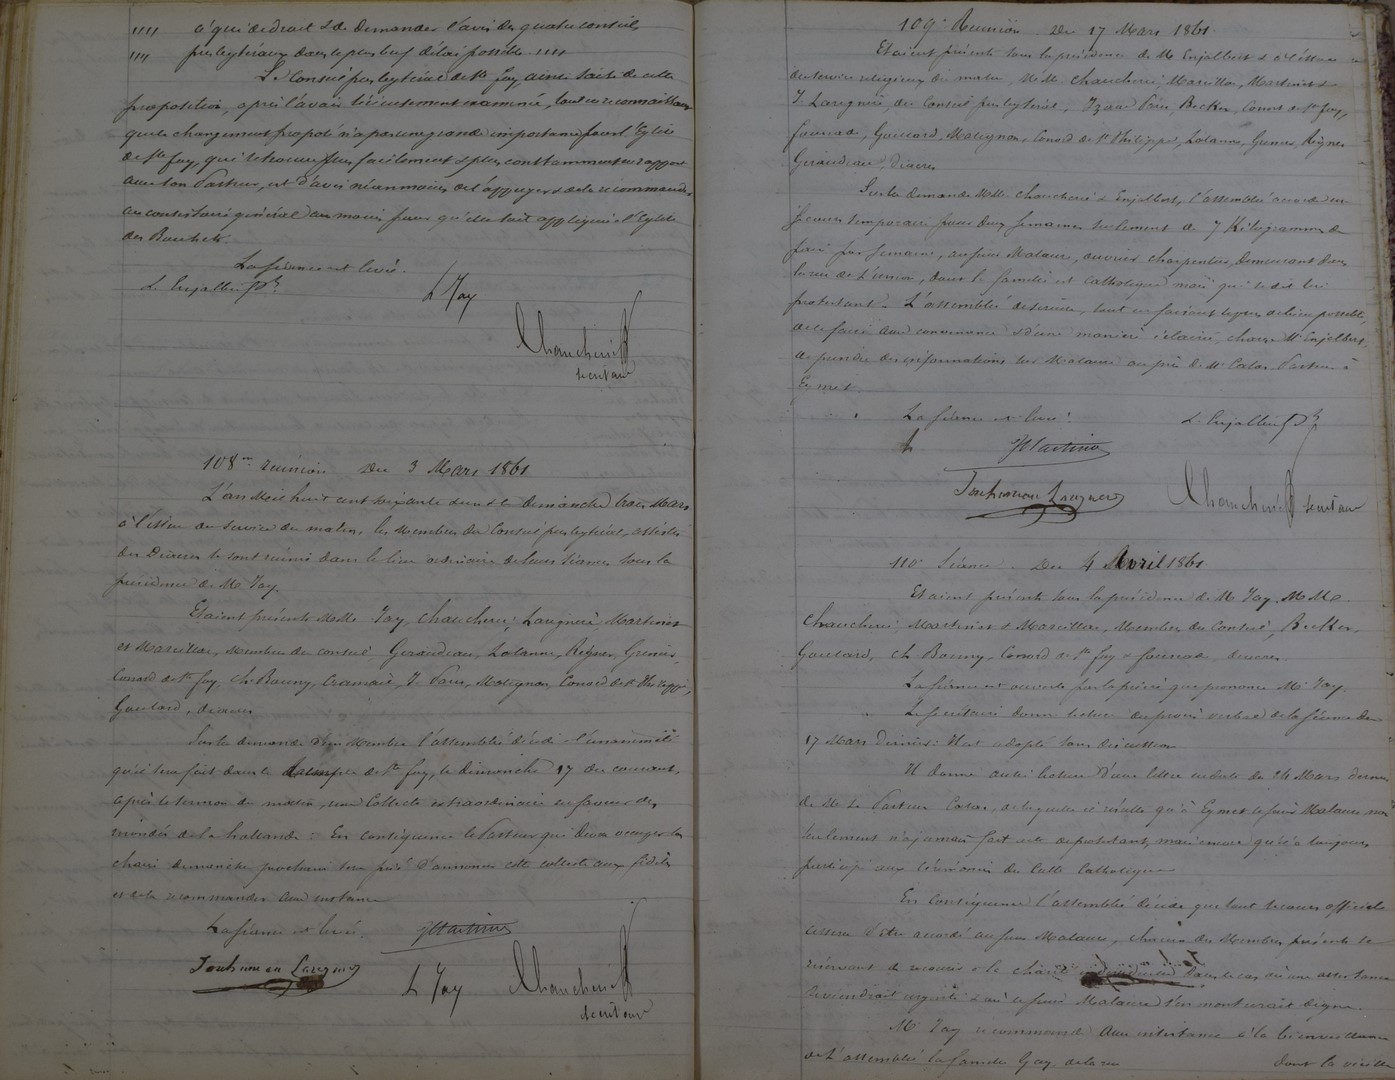 "" à qui de droit & de demander l'avis des quatre conseils
"" presbytéraux dans le plus bref délai possible ""
Le Conseil presbytéral de Ste foy, ainsi saisi de cette
proposition, après l'avoir sérieusement examinée, tout en reconnaissant
que le changement proposé n'a pas une grande importance pour l'Eglise
de Ste foy, qui se trouve plus facilement & plus constamment en rapport
avec son Pasteur, est d'avis néanmoins de l'appuyer & de la recommander
au consistoire général au moins pour qu'elle soit appliquée à l'Eglise
des Bouhets.
La séance est levée.
L. Enjalbert pr.
L Jay
Chaucherie
secrétaire
108me réunion du 3 Mars 1861
L'an Mil huit cent soixante un & le dimanche trois Mars
à l'issue du service du matin, les Membres du Conseil presbytéral, assistés
des Diacres se sont réunis dans le lieu ordinaire de leurs séances sous la
présidence de Mr Jay.
Etaient présents MMrs Jay, Chaucherie, Laregnère Martinet
et Marcillac, membres du conseil Geraudeau, Lalanne, Reynes, Grenier,
Conord de Ste foy, Ch. Bonny, J. Paris, Matignon, Conord de St Philippe,
Goulard, diacres.
Sur la demande d'un Membre l'assemblée décide à l'unanimité
qu'il sera fait dans le temple de Ste foy, le dimanche 17 du courant,
après le sermon du matin, une Collecte extraordinaire en faveur des
inondés de la hollande. En conséquence le Pasteur qui devra occuper la
chaire dimanche prochain sera prié d'annoncer cette collecte aux fidèles
et de la recommander avec instance
La séance est levée.
JMartinet
Laregnère
L Jay
Chaucherie
secrétaire
109e Réunion du 17 Mars 1861.
Etaient présents sous la présidence de Mr Enjalbert & à l'issue
du service religieux du matin, MMrs Chaucherie, Marcillac, Martinet &
J. Laregnère, du Conseil presbytéral, Izaac Paris, Becker, Conord de Ste foy,
Goulard, Matignon, Conord de St Philippe, Lalanne, Grenier, Reynes
Geraudeau, Diacres
Sur la demande MMrs Chaucherie & Enjalbert, l'assemblée accorde un
secours temporaire pour deux semaines seulement de 7 Kilogrammes de
pain par semaine, au sieur Malaure, ouvrier charpentier, demeurant dans
la rue de l'union, dont la famille est catholique mais qui se dit lui
protestant. L'assemblée désireuse, tout en faisant le plus de bien possible,
de le faire avec convenance & d'une manière éclairée, charge Mr Enjalbert,
de prendre des informations sur Malaure auprès de Mr Calas Pasteur à
Eymet.
La séance est levée.
L. Enjalbert pr.
JMartinet
Laregnère
Chaucherie secrétaire
110e Séance du 4 Avril 1861
Etaient présents sous la présidence de Mr Jay, MMrs
Chaucherie, Martinet & Marcillac, Membres du Conseil, Becker,
Goulard, Ch Bonny, Conord de Ste foy & diacres.
La séance est ouverte par la prière que prononce Mr Jay.
Le secrétaire donne lecture du procès verbal de la séance du
17 Mars dernier. Il est adopté sans discussion
Il donne aussi lecture d'une lettre en date du 26 Mars dernier
de Mr le Pasteur Calas, de laquelle il résulte qu'à Eymet le sieur Malaure, non
seulement n'a jamais fait acte de protestant, mais encore qu'il a toujours
participé aux cérémonies du Culte Catholique
En conséquence l'assemblée décide que tout secours officiel
cessera d'être accordé au sieur Malaure, chacun des Membres présents se
réservant de recourir à la charité individuelle dans le cas où une assistance
deviendrait urgente & où le sieur Malaure s'en montrerait digne.
Mr Jay recommande avec insistance à la bienveillance
de l'assemblée la famille Gay, de la rue dont la vieille